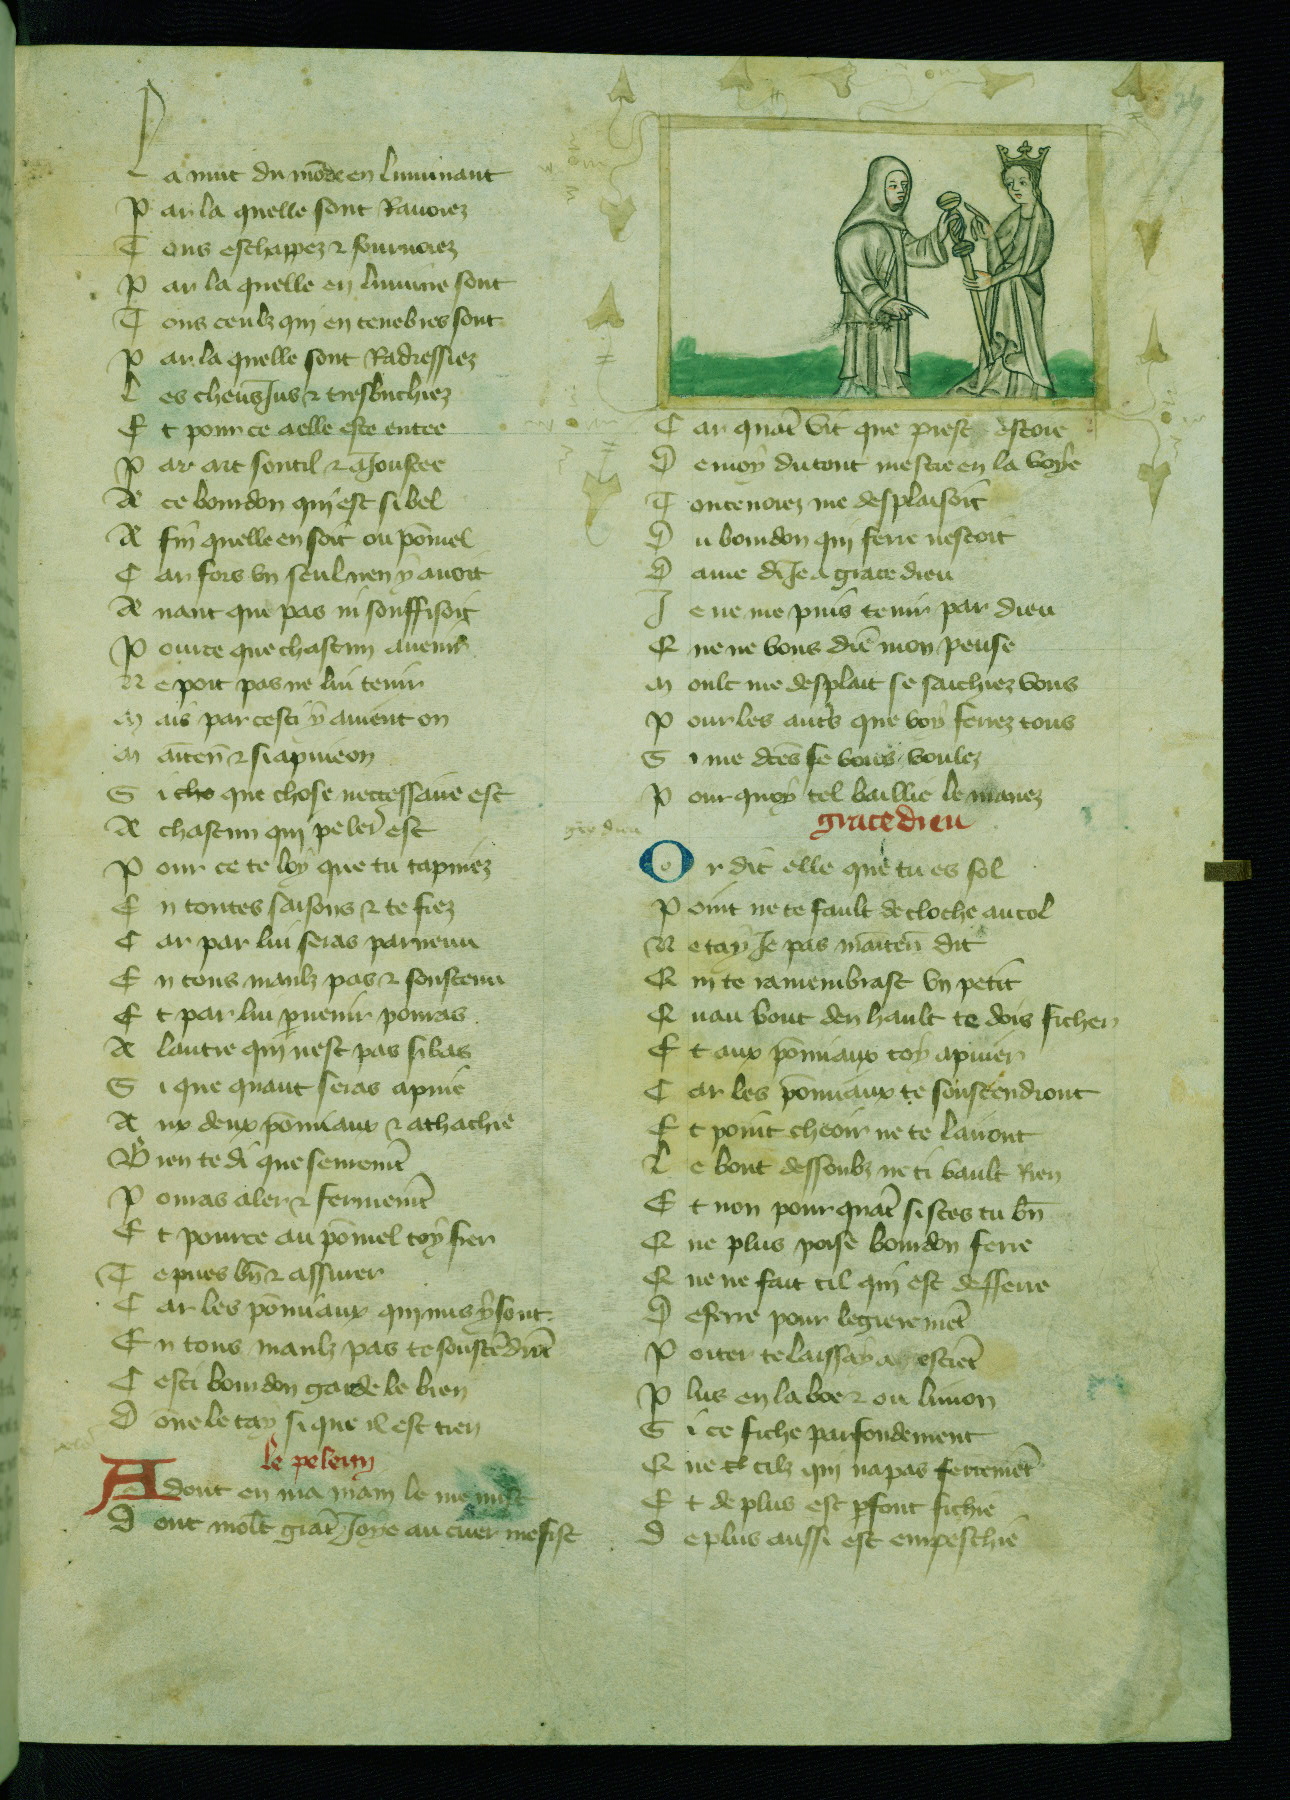 La nuit du mōde en luminant
Par la quelle sont Ravoiez
Tous eschappez ⁊ fourvoiez
Par la quelle en lumine sont
Tous ceulz qui en tenebres sont
Par la quelle sont Radressiez
Les cheus Jus ⁊ tresbuchiez
Et pour ce a elle este entee
Par art soutil ⁊ aJoustee
A ce bourdon qui est si bel
A fin quelle en soit ou pōmel
Car fors vn seul nen y auoit
Auant que pas ni souffisoit
Pour ce que chascun auenir
Ne poit pas ne lui tenir
Mais par cesti y auient on
Maīten̄ ⁊ si apuie on
Si que chose neccessaire est
A chascun qui peler̄ est
Pour ce te loy que tu tapuiez
En toutes saisons ⁊ te fiez
Car par lui seras parvenu
En tous maulz pas ⁊ soustenu
Et par lui p̄uenir pourras
A lautre qui nest pas si bas
Si que quant seras apuie
Aux deux pōmiaux ⁊ athachie
Bien te di que seuremēt
Pourras aler ⁊ fermemēt
Et pource au pōmel toy fier
Te pues bn̄ ⁊ assurer
Car les pōmiaux qui mis y sont
En tous maulz pas te soustēdrōt
Cesti bourdon garde le bien
Dōne le tay si que il est tien
le pelerin
Adont en ma main le me mist
Dont mōlt grāt Joye au cuer me fist
Car quāt vit que prest estoie
De moy du tout mestre en la voye
Toutenoiez me desplaisoit
Du bourdon qui ferre nestoit
Dame dis Je a grace dieu
Je ne me puis tenir par dieu
Que ne vous die mon pense
Moult me desplait se saichiez vous
Pour les autrs que voy ferrez tous
Si me dtēs se vous voulez
Pour quoy tel baillie le mauez
grace dieu
Or dit elle que tu es fol
Point ne te fault de cloche au col
Ne tay Je pas maīten̄ dit
Qui te ramembrast vn petit
Quau bout den hault te dois fichier
Et aux pōmiaux toy apuier
Car les pōmiaux te soustendront
Et point cheoir ne te lairont
Le bout dessoubz ne ti vault Rien
Et non pour quāt si sces tu bn̄
Que plus poise bourdon ferre
Que ne fait cil qui est defferre
Deferre pour legieremēt
Porter te laissay a esciēt
Plus en la boe ⁊ ou limon
Si ce fiche parfondement
Que cilz qui na pas ferremēt
Et de plus est p̄font fichie
De plus aussi est empeschie